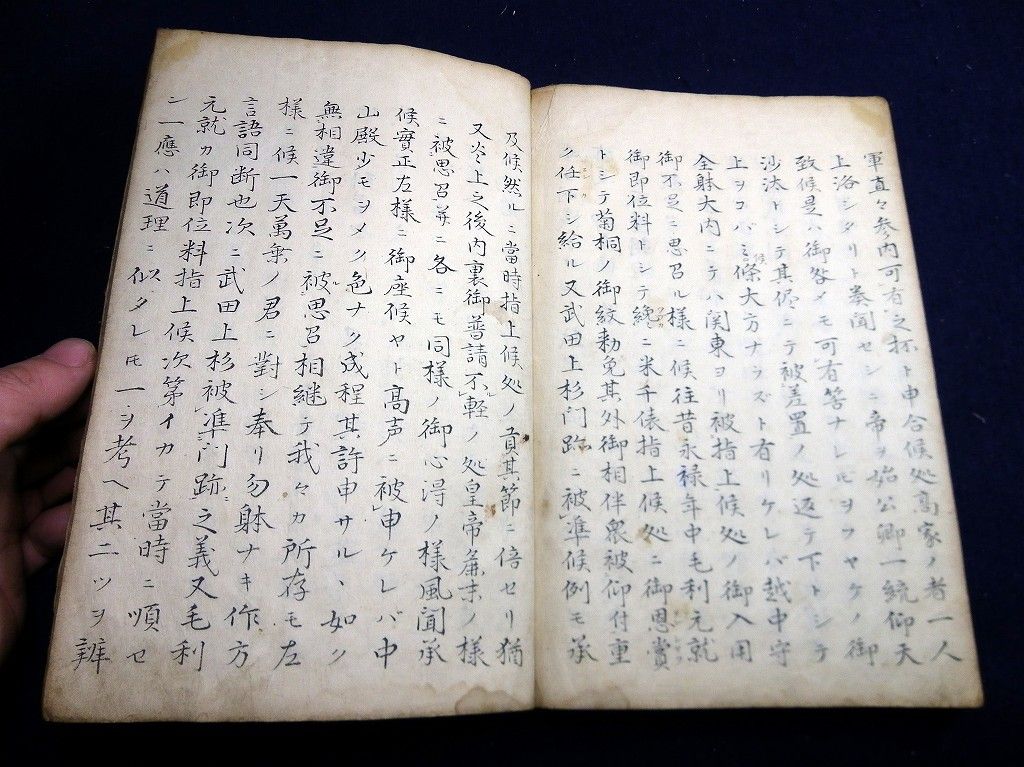 軍直々参内可有之抔ト申合候処高家ノ者一人
上洛シタリト奏聞セシニ帝ヲ始公卿一統仰天
致候是ハ御咎メモ可有筈ナレモヲヲヤケノ御
沙汰トシテ其侭ニテ被差置ノ処返テ下トシテ
上ヲコバミ候條大方ナラズト有リケレバ越中守
全躰大内ニテハ関東ヨリ被指上候処ノ御入用
御不足ニ思召ル様ニ候往昔永禄年中毛利元就
御即位料トシテ纔ニ米千俵指上候処ニ御恩賞
トシテ菊桐ノ御紋勅免其外御相伴衆被仰付重
ク任下シ給ル又武田上杉門跡ニ被準候例モ承
及候然ルニ當時指上候処ノ員其節ニ倍セリ猶
又炎上之後内裏御普請不軽ノ処皇帝麁末ノ様
ニ被思召并ニ各ニモ同様ノ御心得ノ様風聞承
候實正左様ニ御座候ヤト高声ニ被申ケレバ中
山殿少モヲメク色ナク成程其許申サルヽ如ク
無相違御不足ニ被思召相継テ我々カ所存モ左
様ニ候一天萬乗ノ君ニ對シ奉リ勿躰ナキ作方
言語同断也次ニ武田上杉被準門跡之義又毛利
元就カ御即位料指上候次第イカテ當時ニ順セ
ン一應ハ道理ニ似タレモ一ヲ考ヘ其二ツヲ辨